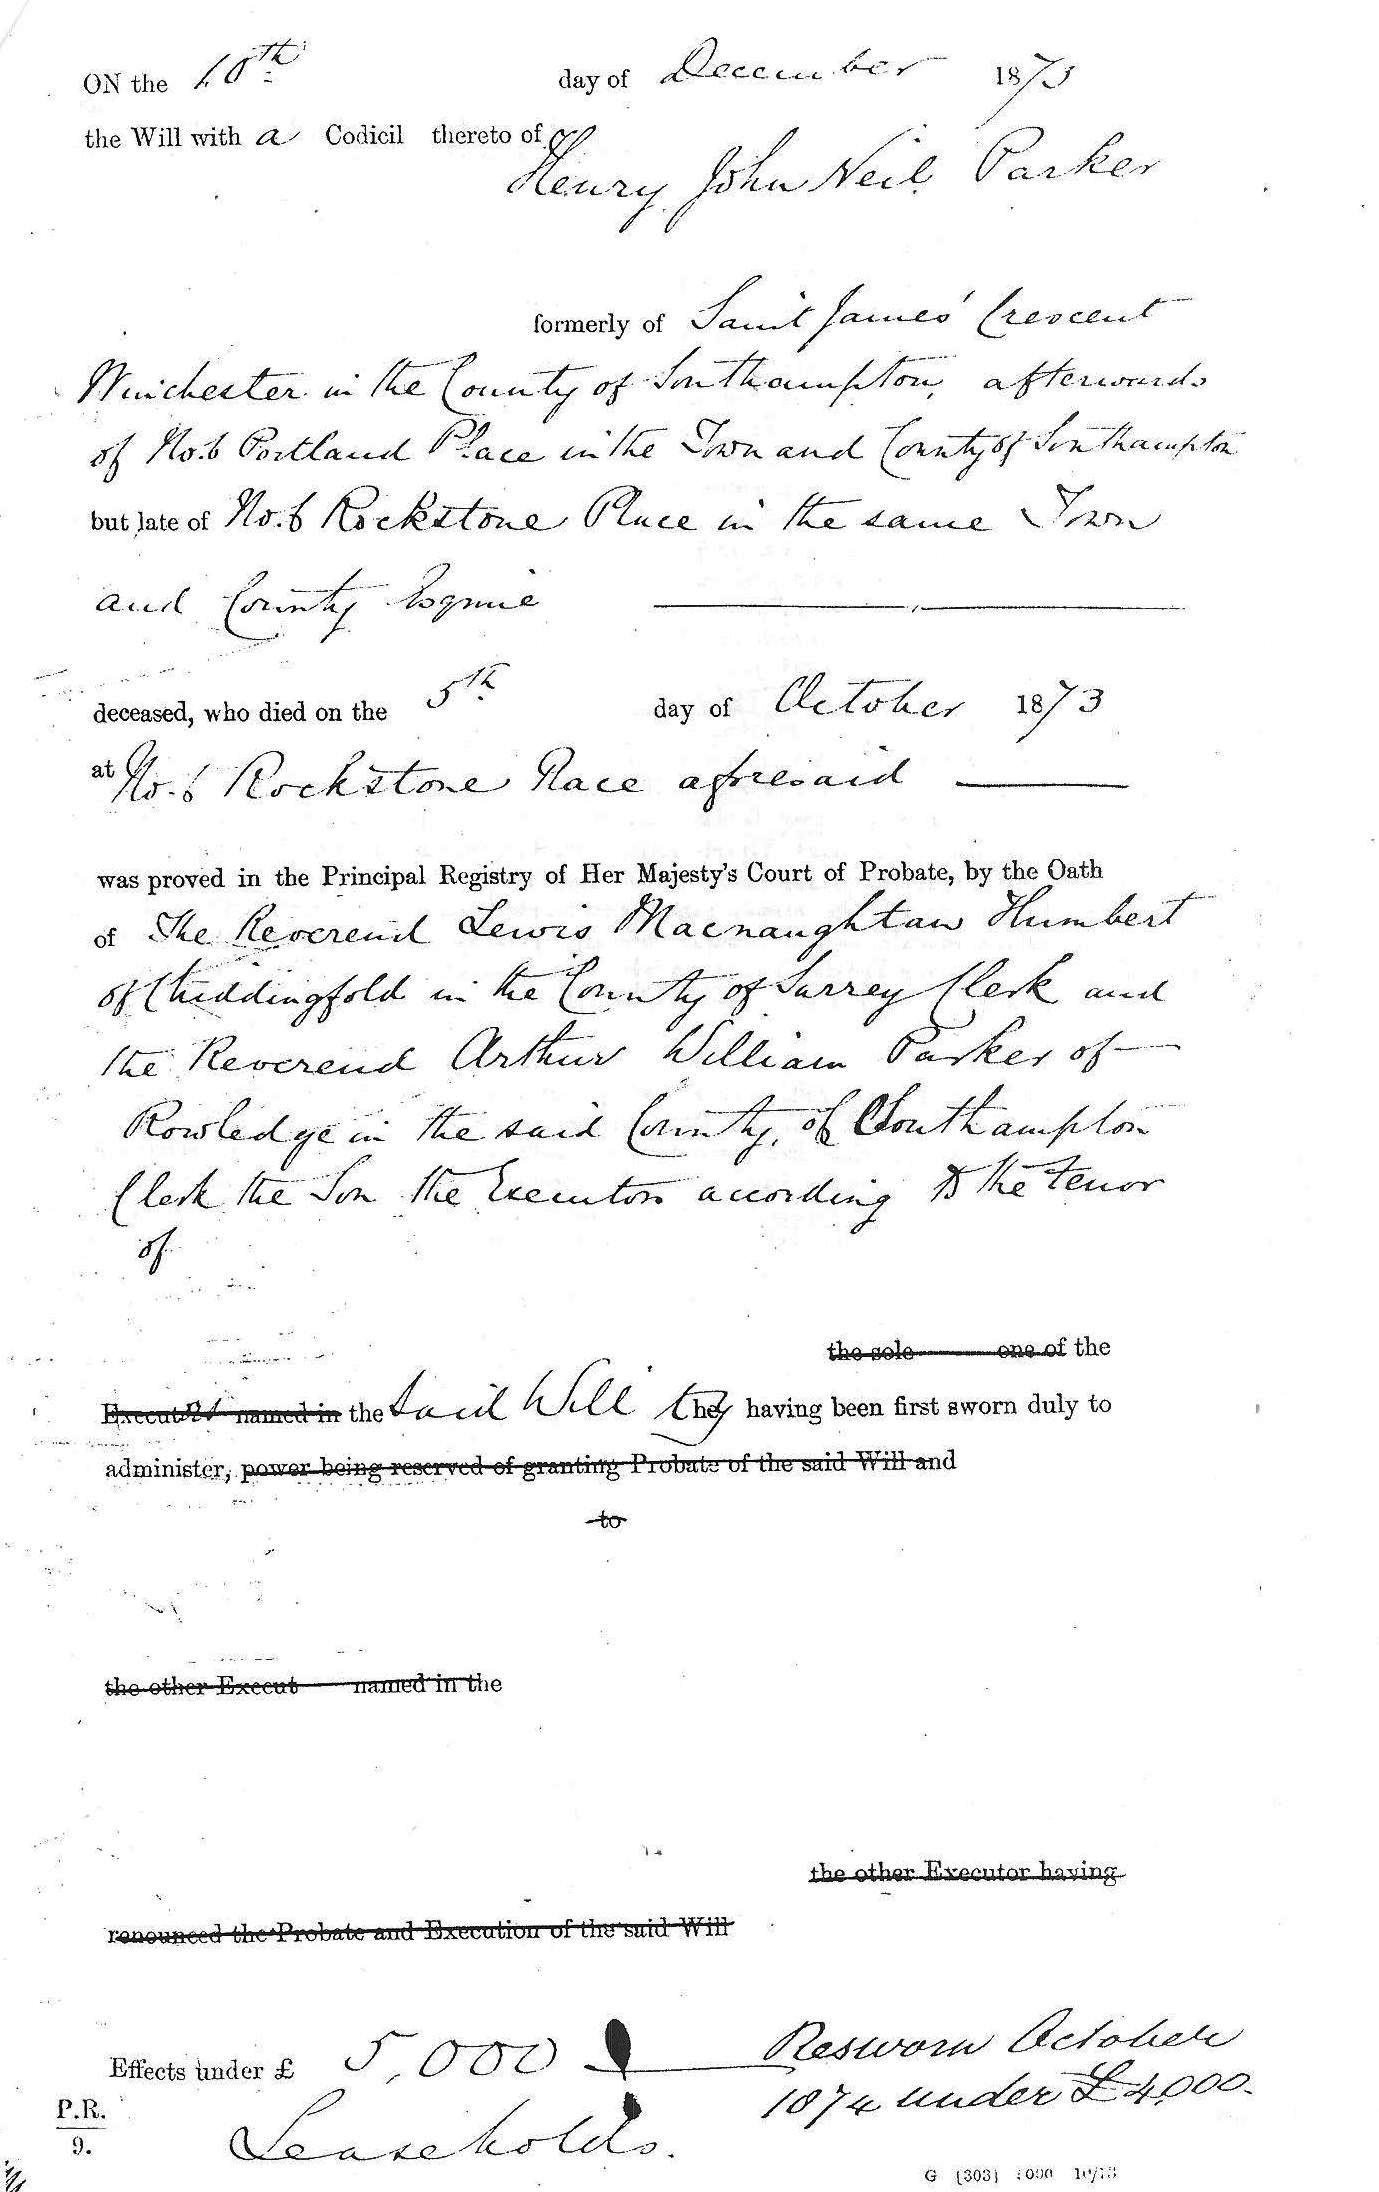 ON the 10th day of December 1873
the Will with a Codicil thereto of
Henry John Neil Parker
formerly of Saint James' Crescent
Winchester in the County of Southampton, afterwards
of No. 6 Portland Place in the Town and County of Southampton
but late of No. 6 Rockstone Place in the same Town
and County Esquire
deceased, who died on the 5th day of October 1873
at No. 6 Rockstone Place aforesaid
was proved in the Principal Registry of Her Majesty's Court of Probate, by the Oath
of The Reverend Lewis Macnaughtan Humbert
of Chiddingfold in the County of Surrey Clerk and
the Reverend Arthur William Parker of
Rowledge in the said County of Southampton
Clerk the Son the Executors according to the tenor
of
the sole one of the
Executors named in the said Will they having been first sworn duly to
administer, power being reserved of granting Probate of the said Will and
to
the other Execut named in the
the other Executor having
renounced the Probate and Execution of the said Will
Effects under £ 5,000 Resworn October
1874 under £4,000.
Leaseholds.
P.R.
9.
G {303} 1000 10/73